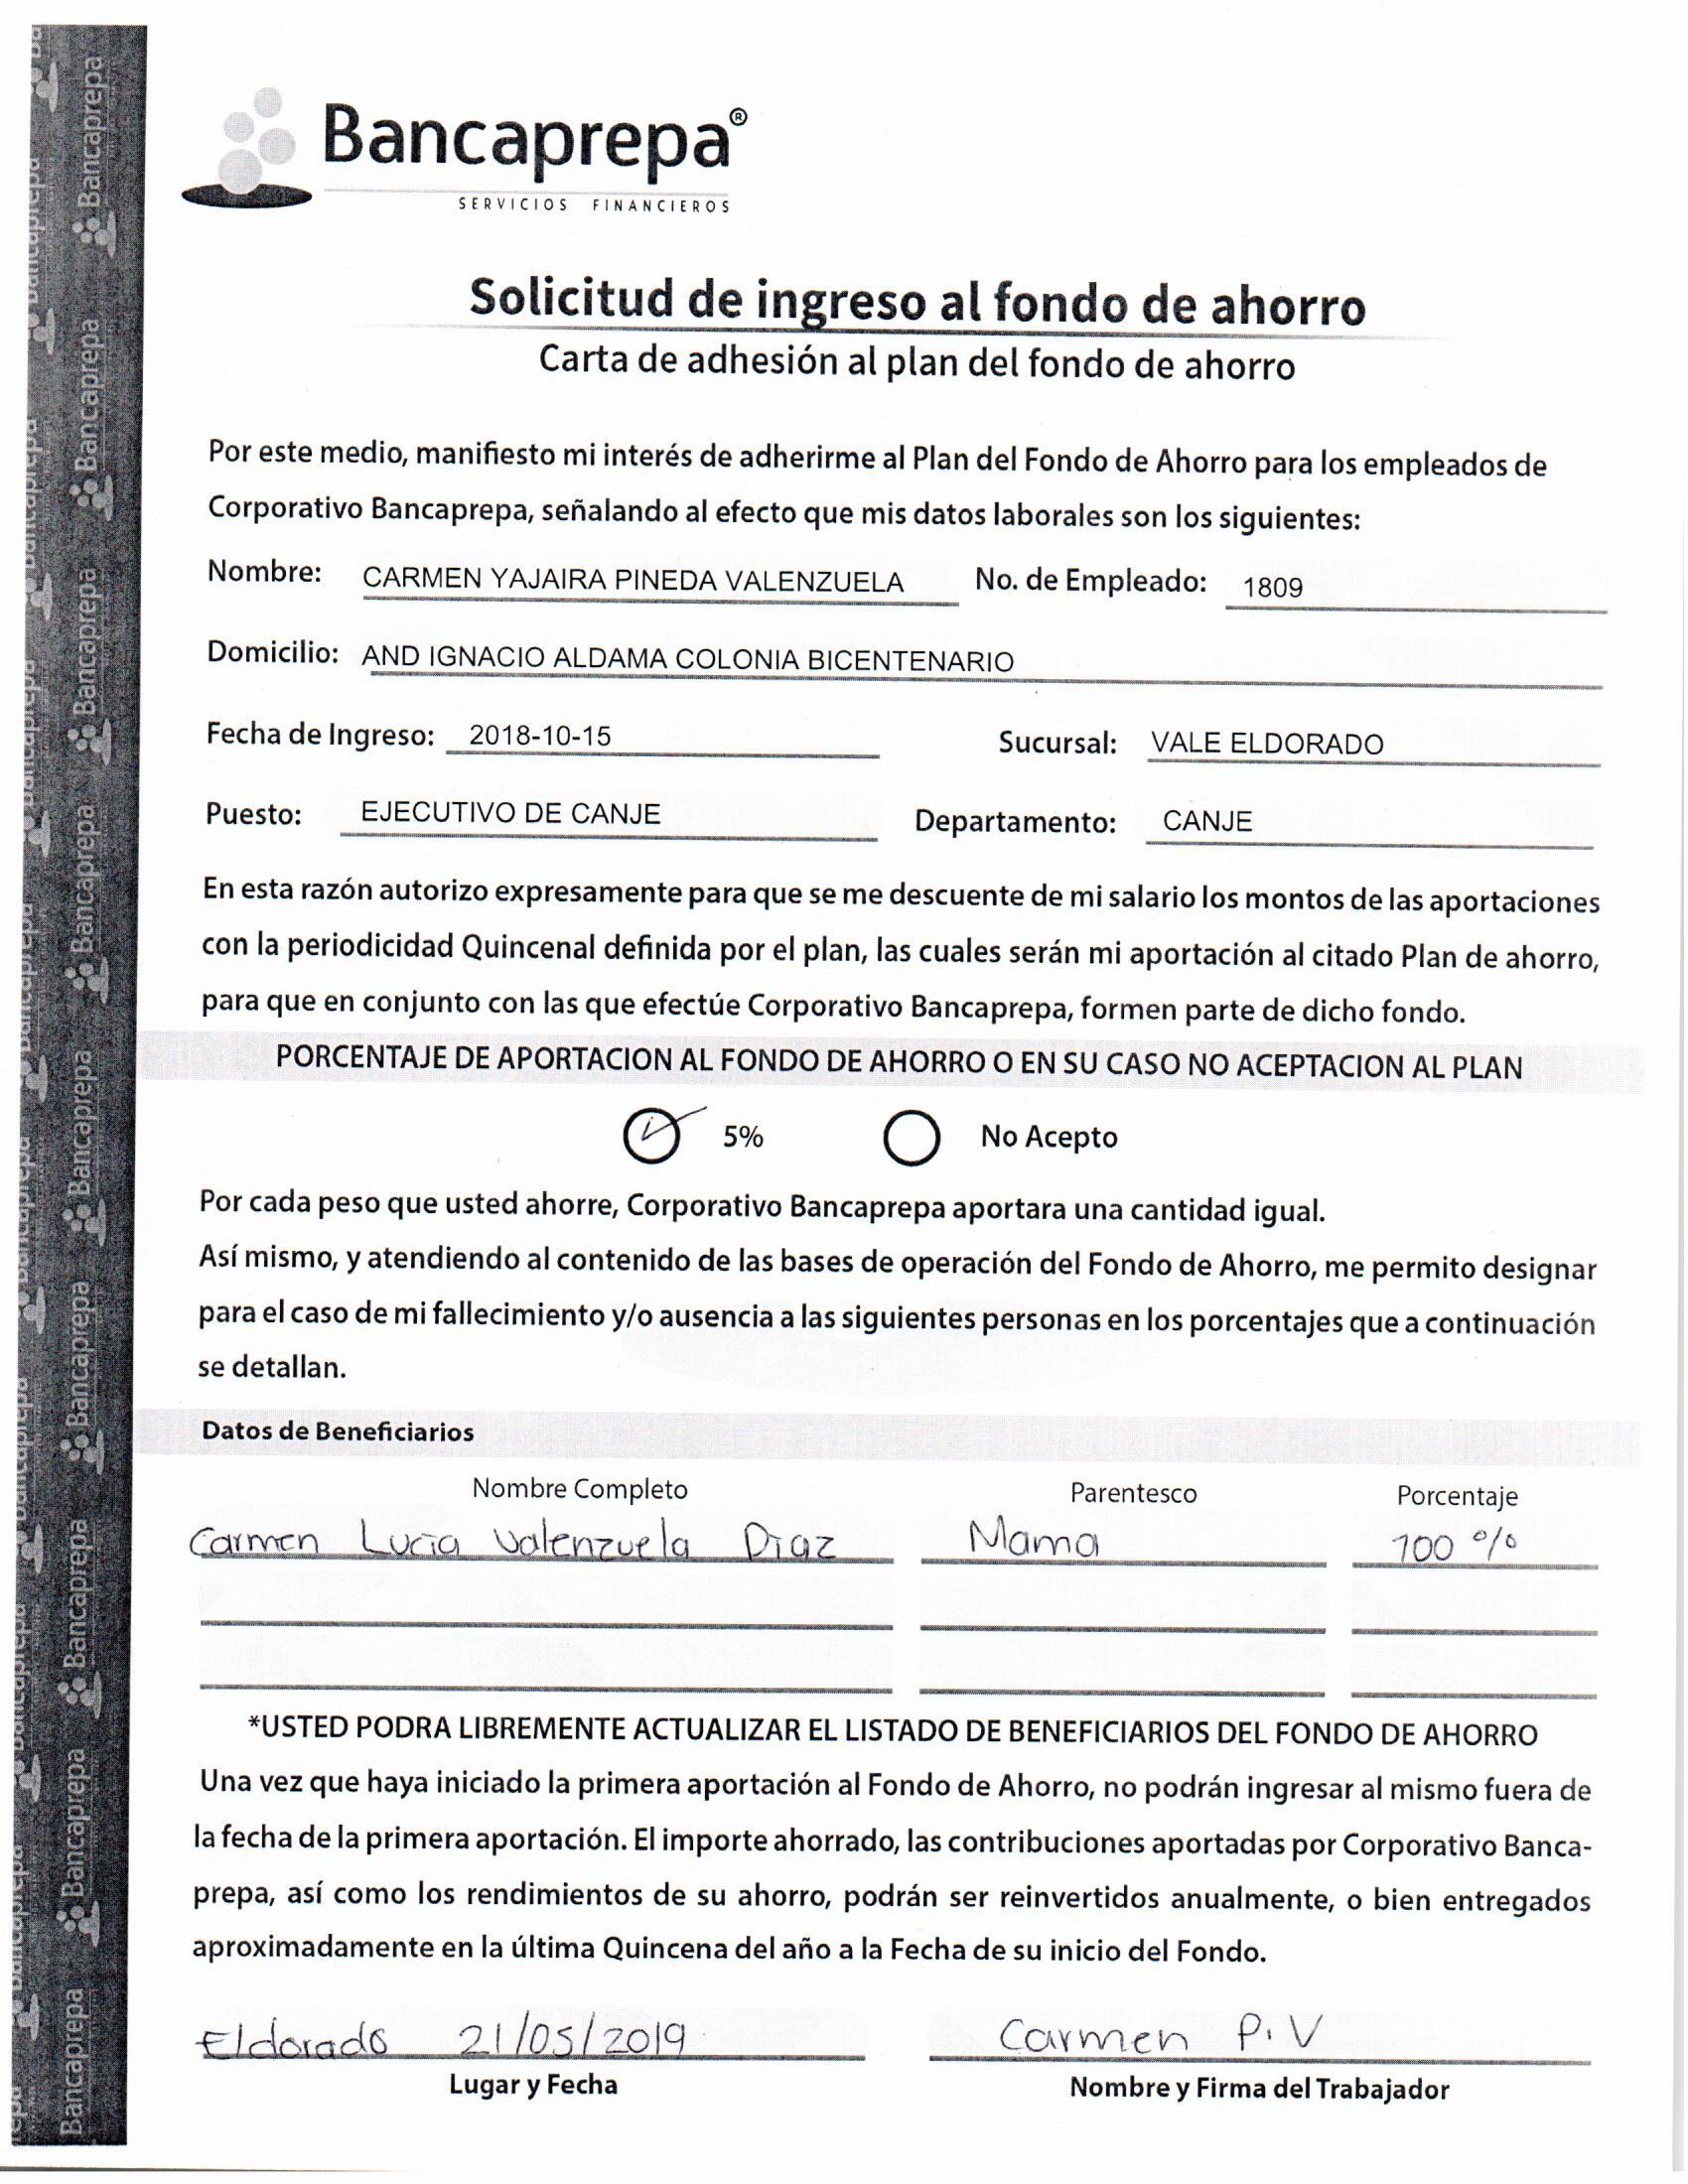 Bancaprepa®
SERVICIOS FINANCIEROS
Solicitud de ingreso al fondo de ahorro
Carta de adhesión al plan del fondo de ahorro
Por este medio, manifiesto mi interés de adherirme al Plan del Fondo de Ahorro para los empleados de
Corporativo Bancaprepa, señalando al efecto que mis datos laborales son los siguientes:
Nombre: CARMEN YAJAIRA PINEDA VALENZUELA No. de Empleado: 1809
Domicilio: AND IGNACIO ALDAMA COLONIA BICENTENARIO
Fecha de Ingreso: 2018-10-15 Sucursal: VALE ELDORADO
Puesto: EJECUTIVO DE CANJE Departamento: CANJE
En esta razón autorizo expresamente para que se me descuente de mi salario los montos de las aportaciones
con la periodicidad Quincenal definida por el plan, las cuales serán mi aportación al citado Plan de ahorro,
para que en conjunto con las que efectúe Corporativo Bancaprepa, formen parte de dicho fondo.
PORCENTAJE DE APORTACION AL FONDO DE AHORRO O EN SU CASO NO ACEPTACION AL PLAN
5% No Acepto
Por cada peso que usted ahorre, Corporativo Bancaprepa aportara una cantidad igual.
Así mismo, y atendiendo al contenido de las bases de operación del Fondo de Ahorro, me permito designar
para el caso de mi fallecimiento y/o ausencia a las siguientes personas en los porcentajes que a continuación
se detallan.
Datos de Beneficiarios
Nombre Completo Parentesco Porcentaje
Carmen Lucia Valenzuela Diaz Mama 100 %
*USTED PODRA LIBREMENTE ACTUALIZAR EL LISTADO DE BENEFICIARIOS DEL FONDO DE AHORRO
Una vez que haya iniciado la primera aportación al Fondo de Ahorro, no podrán ingresar al mismo fuera de
la fecha de la primera aportación. El importe ahorrado, las contribuciones aportadas por Corporativo Banca-
prepa, así como los rendimientos de su ahorro, podrán ser reinvertidos anualmente, o bien entregados
aproximadamente en la última Quincena del año a la Fecha de su inicio del Fondo.
Eldorado 21/05/2019 Carmen P. V
Lugar y Fecha Nombre y Firma del Trabajador